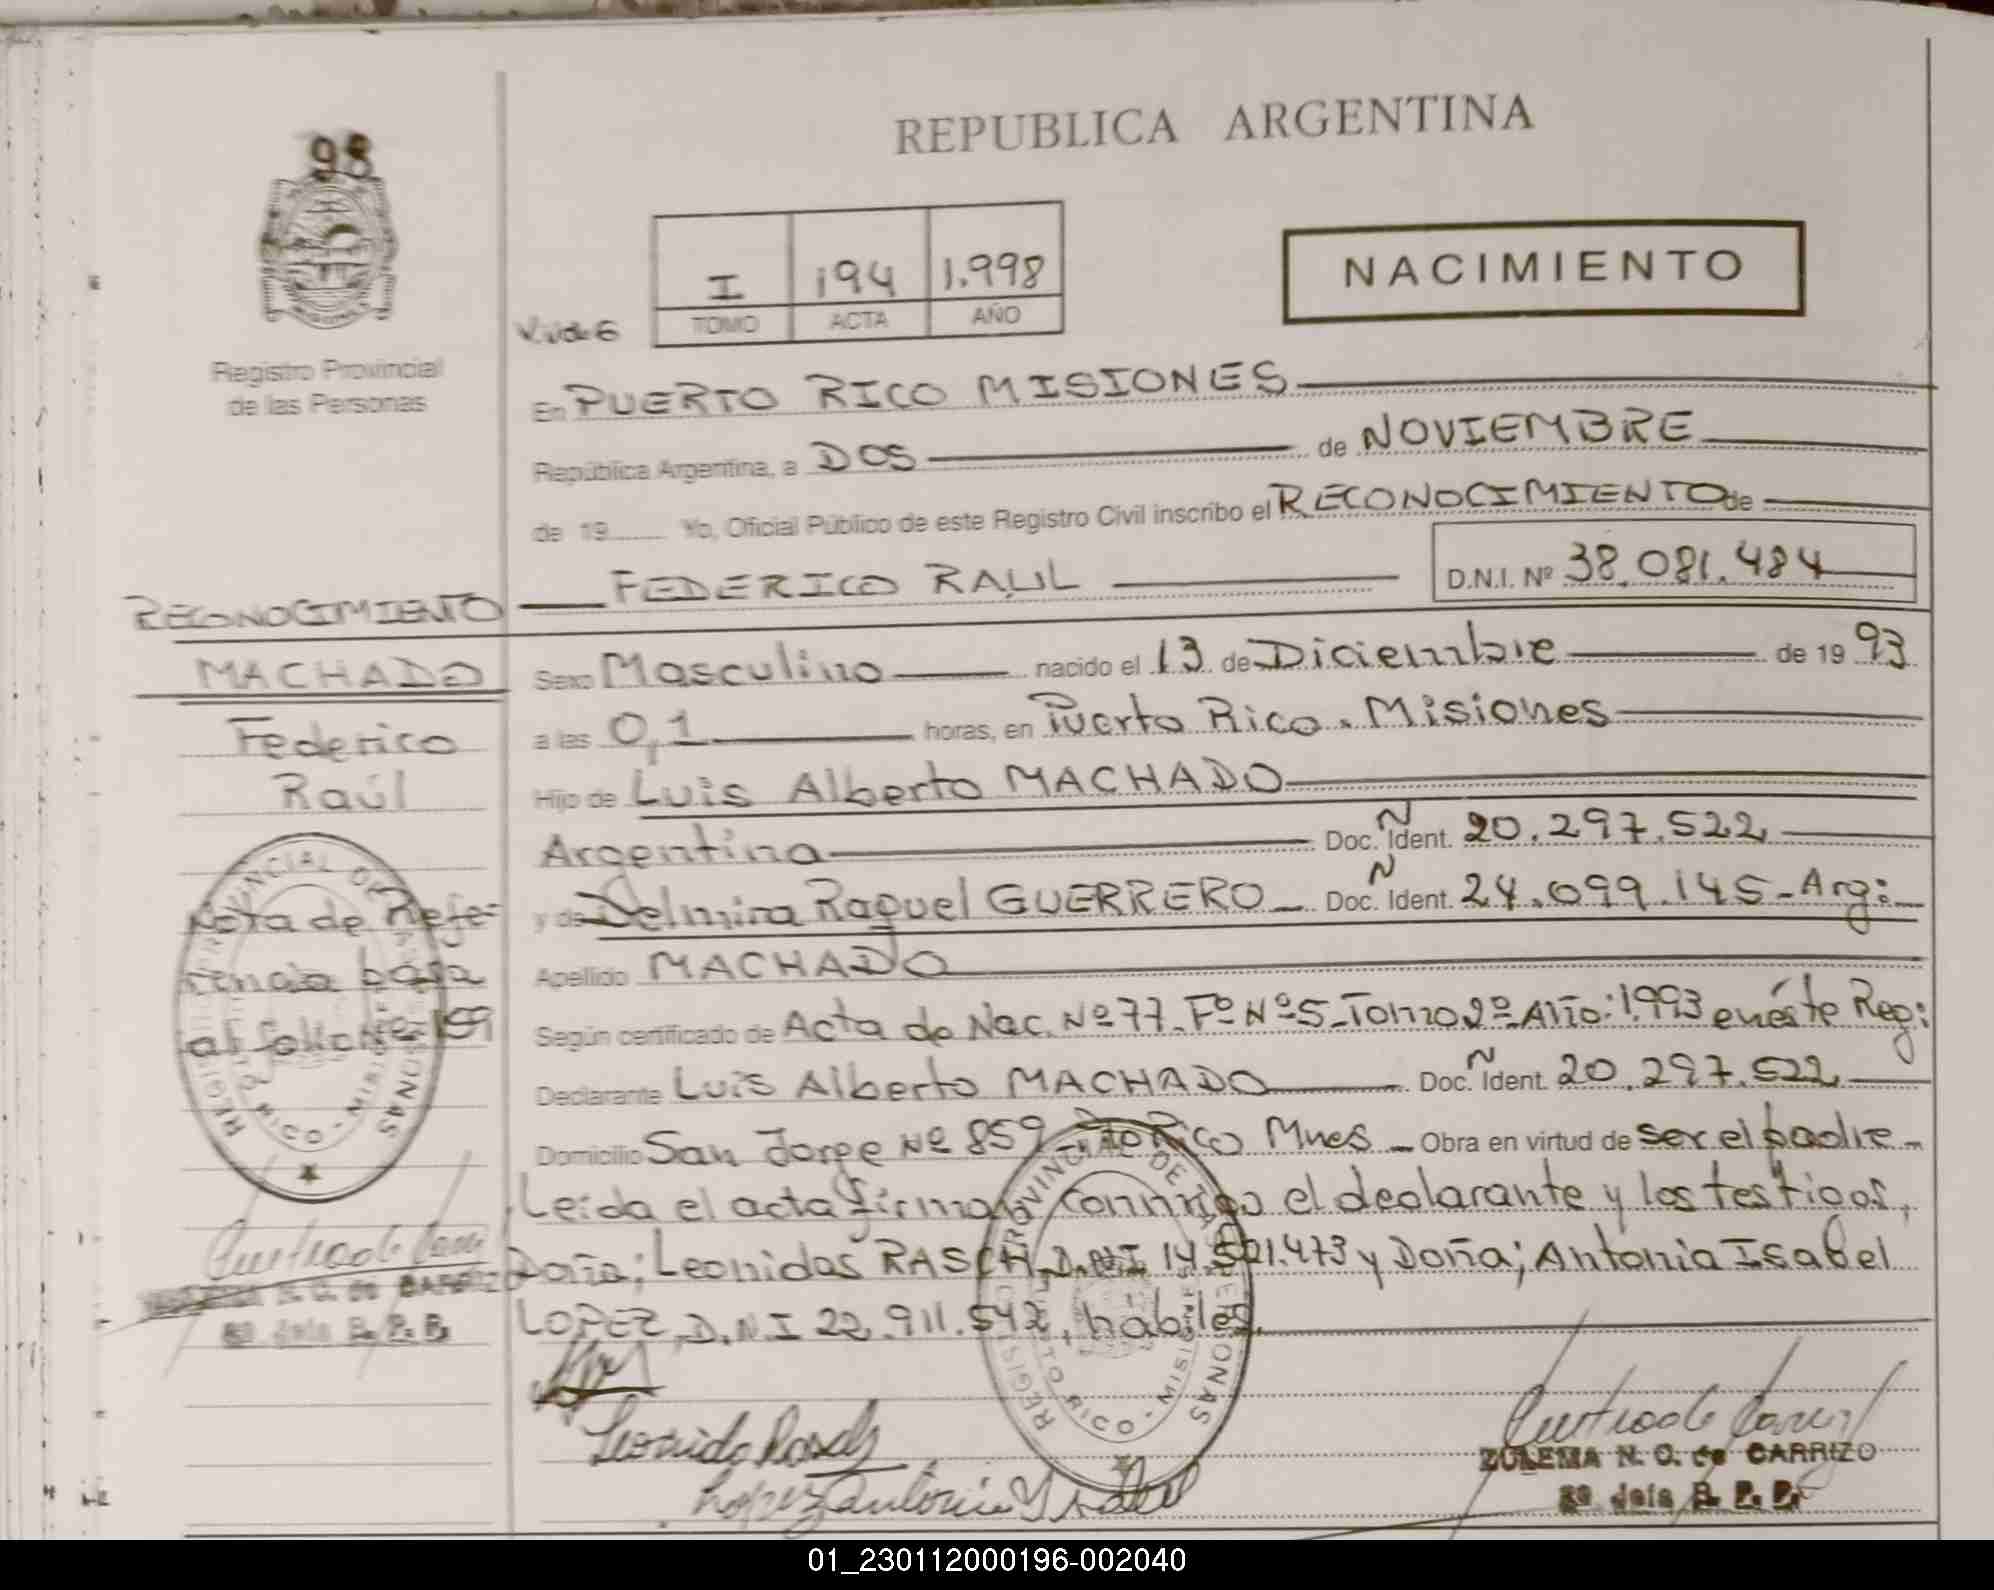 98
REPUBLICA ARGENTINA
NACIMIENTO
I 194 1.998
TOMO ACTA AÑO
Registro Provincial
de las Personas
En PUERTO RICO MISIONES
República Argentina, a DOS de NOVIEMBRE
de 19 Yo, Oficial Público de este Registro Civil inscribo el RECONOCIMIENTO de
FEDERICO RAUL D.N.I. Nº 38.081.484
RECONOCIMIENTO
MACHADO
Federico
Raúl
Sexo Masculino nacido el 13 de Diciembre de 1993
a las 0,1 horas, en Puerto Rico. Misiones
Hijo de Luis Alberto MACHADO
Argentina Doc. Ident. 20.297.522
y de Delmira Raquel GUERRERO Doc. Ident. 24.099.145 - Arg:
Apellido MACHADO
Según certificado de Acta de Nac. Nº 77. Fº Nº 5 - Tomo 2º Año: 1.993 en éste Reg:
Declarante Luis Alberto MACHADO Doc. Ident. 20.297.522
Domicilio San Jorge Nº 859 Pto Rico Mnes - Obra en virtud de ser el padre
Leida el acta firman conmigo el declarante y los testigos,
Doña; Leonidas RASCH, D.N.I 14.521.473 y Doña; Antonia Isabel
LOPEZ, D.N.I 22.911.542, habiles.
Nota de Refe-
rencia pasa
al folio 159
REGISTRO PROVINCIAL DE LAS PERSONAS
PUERTO RICO - MISIONES
ZULEMA N. C. de CARRIZO
REGISTRO PROVINCIAL DE LAS PERSONAS
PUERTO RICO - MISIONES
Leonida Rasch
Lopez Antonia Isabel
ZULEMA N. C. de CARRIZO
01_230112000196-002040